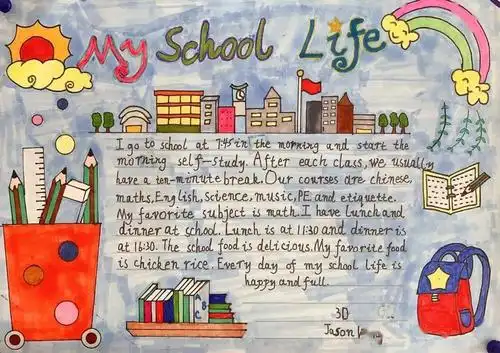 My School Life
I go to school at 7:45 in the morning and start the
morning self-study. After each class, we usually
have a ten-minute break. Our courses are chinese,
maths, English, science, music, PE and etiquette.
My favorite subject is math. I have lunch and
dinner at school. Lunch is at 11:30 and dinner is
at 16:30. The school food is delicious. My favorite food
is chicken rice. Every day of my school life is
happy and full.
A
B
C
3D
Jason